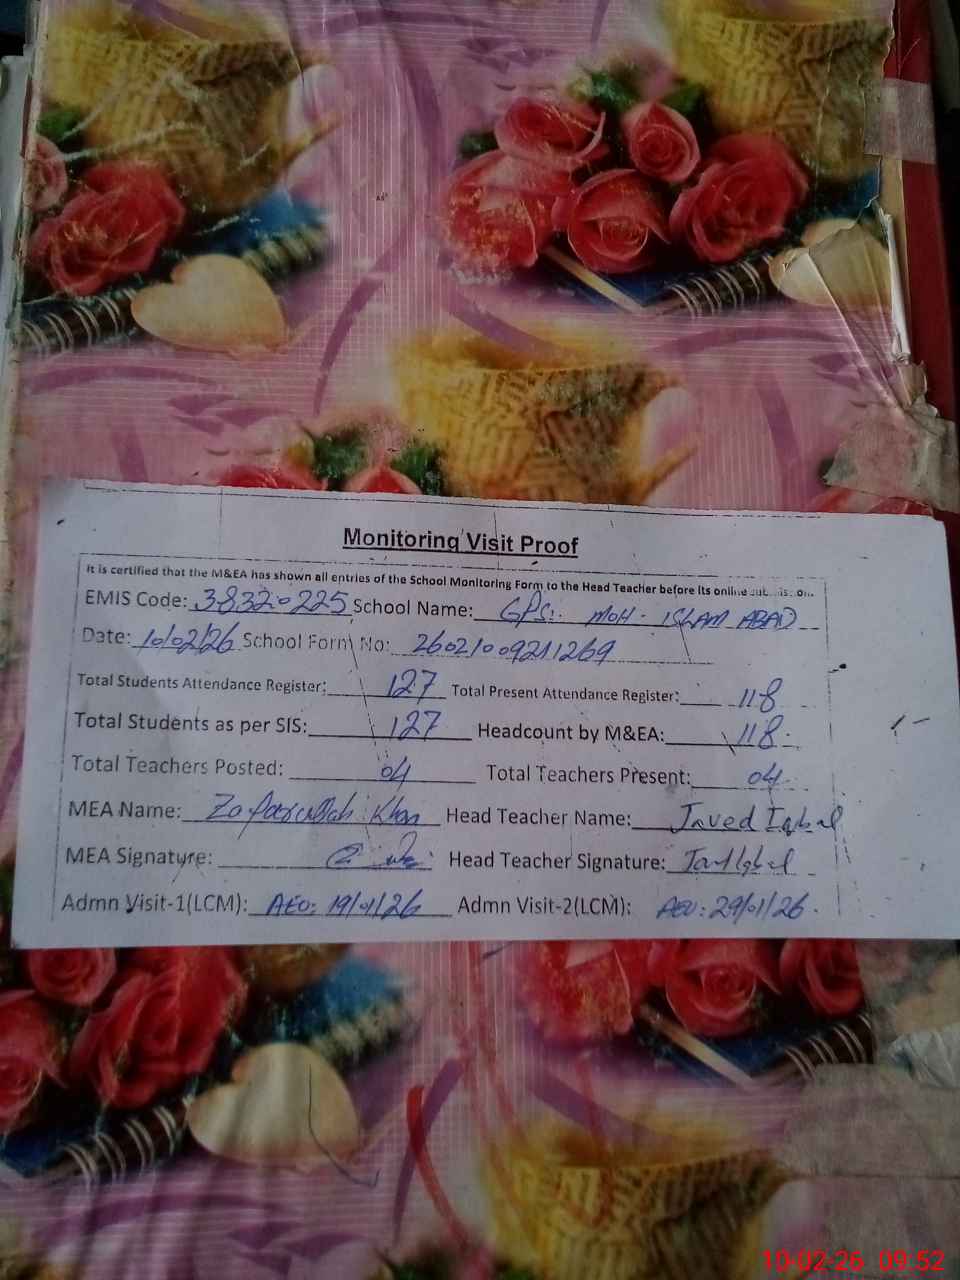 Monitoring Visit Proof
It is certified that the M&EA has shown all entries of the School Monitoring Form to the Head Teacher before its online submission.
EMIS Code: 38320225 School Name: GPS: MOH. ISLAM ABAD
Date: 10/02/26 School Form No:
Total Students Attendance Register: 127 Total Present Attendance Register: 118
Total Students as per SIS: 127 Headcount by M&EA: 118
Total Teachers Posted: 04 Total Teachers Present: 04
MEA Name: Zafarullah Khan Head Teacher Name: Javed Iqbal
MEA Signature: Head Teacher Signature:
Admn Visit-1(LCM): AEO: 19/01/26 Admn Visit-2(LCM): AEO: 29/01/26
10-02-26 09:52